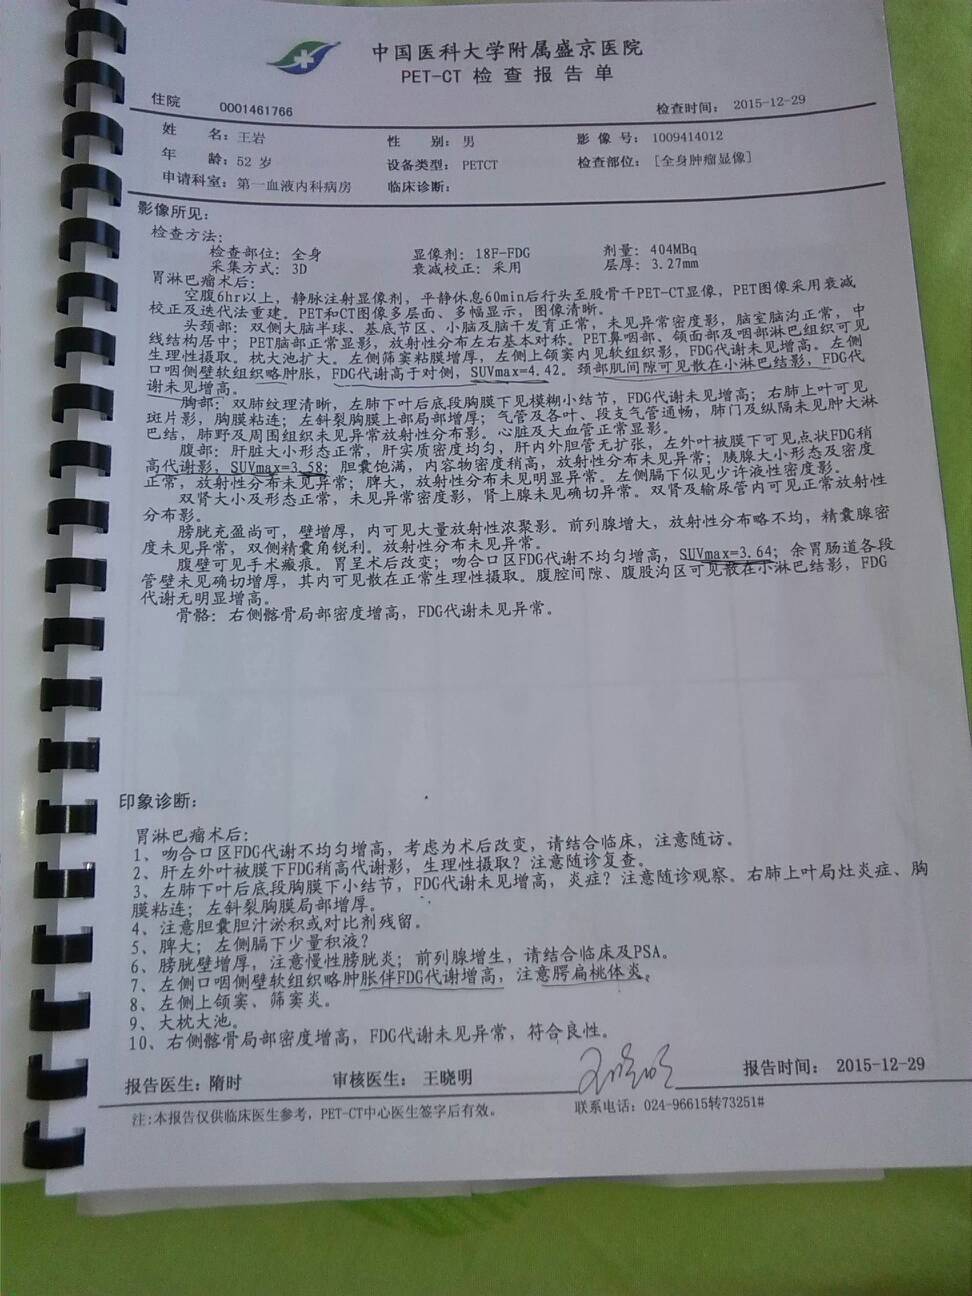 中国医科大学附属盛京医院
PET-CT 检 查 报 告 单
住院 0001461766 检查时间： 2015-12-29
姓 名：王岩 性 别：男 影 像 号： 1009414012
年 龄：52 岁 设备类型： PETCT 检查部位： [全身肿瘤显像]
申请科室：第一血液内科病房 临床诊断：
影像所见：
检查方法：
检查部位：全身 显像剂：18F-FDG 剂量： 404MBq
采集方式：3D 衰减校正：采用 层厚：3.27mm
胃淋巴瘤术后：
空腹6hr以上，静脉注射显像剂，平静休息60min后行头至股骨干PET-CT显像，PET图像采用衰减
校正及迭代法重建。PET和CT图像多层面、多幅显示，图像清晰。
头颈部：双侧大脑半球、基底节区、小脑及脑干发育正常，未见异常密度影，脑室脑沟正常，中
线结构居中；PET脑部正常显影，放射性分布左右基本对称。PET鼻咽部、颌面部及咽部淋巴组织可见
生理性摄取。枕大池扩大。左侧筛窦粘膜增厚，左侧上颌窦内见软组织影，FDG代谢未见增高。左侧
口咽侧壁软组织略肿胀，FDG代谢高于对侧，SUVmax=4.42。颈部肌间隙可见散在小淋巴结影，FDG代
谢未见增高。
胸部：双肺纹理清晰，左肺下叶后底段胸膜下见模糊小结节，FDG代谢未见增高；右肺上叶可见
斑片影，胸膜粘连；左斜裂胸膜上部局部增厚；气管及各叶、段支气管通畅，肺门及纵隔未见肿大淋
巴结，肺野及周围组织未见异常放射性分布影。心脏及大血管正常显影。
腹部：肝脏大小形态正常，肝实质密度均匀，肝内外胆管无扩张，左外叶被膜下可见点状FDG稍
高代谢影，SUVmax=3.58；胆囊饱满，内容物密度稍高，放射性分布未见异常；胰腺大小形态及密度
正常，放射性分布未见异常；脾大，放射性分布未见明显异常。左侧膈下似见少许液性密度影。
双肾大小及形态正常，未见异常密度影，肾上腺未见确切异常。双肾及输尿管内可见正常放射性
分布影。
膀胱充盈尚可，壁增厚，内可见大量放射性浓聚影。前列腺增大，放射性分布略不均，精囊腺密
度未见异常，双侧精囊角锐利。放射性分布未见异常。
腹壁可见手术瘢痕。胃呈术后改变；吻合口区FDG代谢不均匀增高，SUVmax=3.64；余胃肠道各段
管壁未见确切增厚，其内可见散在正常生理性摄取。腹腔间隙、腹股沟区可见散在小淋巴结影，FDG
代谢无明显增高。
骨骼：右侧髂骨局部密度增高，FDG代谢未见异常。
印象诊断：
胃淋巴瘤术后：
1、吻合口区FDG代谢不均匀增高，考虑为术后改变，请结合临床，注意随访。
2、肝左外叶被膜下FDG稍高代谢影，生理性摄取？注意随诊复查。
3、左肺下叶后底段胸膜下小结节，FDG代谢未见增高，炎症？注意随诊观察。右肺上叶局灶炎症、胸
膜粘连；左斜裂胸膜局部增厚。
4、注意胆囊胆汁淤积或对比剂残留。
5、脾大；左侧膈下少量积液？
6、膀胱壁增厚，注意慢性膀胱炎；前列腺增生，请结合临床及PSA。
7、左侧口咽侧壁软组织略肿胀伴FDG代谢增高，注意腭扁桃体炎。
8、左侧上颌窦、筛窦炎。
9、大枕大池。
10、右侧髂骨局部密度增高，FDG代谢未见异常，符合良性。
报告医生：隋时 审核医生： 王晓明 王晓明 报告时间： 2015-12-29
注:本报告仅供临床医生参考，PET-CT中心医生签字后有效。 联系电话：024-96615转73251#